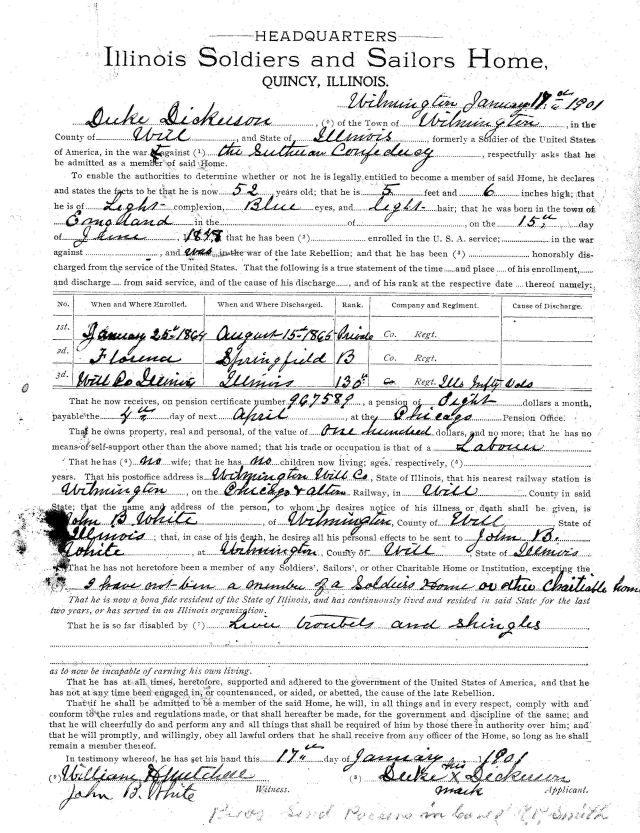 HEADQUARTERS
Illinois Soldiers and Sailors Home,
QUINCY, ILLINOIS.
Wilmington January 17th 1901
Duke Dickerson, (2) of the Town of Wilmington, in the
County of Will, and State of Illinois, formerly a Soldier of the United States
of America, in the war against (1) the Suthurn Confedracy, respectfully asks that he
be admitted as a member of said Home.
To enable the authorities to determine whether or not he is legally entitled to become a member of said Home, he declares
and states the facts to be that he is now 52 years old; that he is 5 feet and 6 inches high; that
he is of Light complexion, Blue eyes, and light hair; that he was born in the town of
England in the of on the 15th day
of June, 1848 that he has been (3) enrolled in the U. S. A. service; in the war
against and was in the war of the late Rebellion; and that he has been (3) honorably dis-
charged from the service of the United States. That the following is a true statement of the time and place of his enrollment,
and discharge from said service, and of the cause of his discharge, and of his rank at the respective date thereof namely:
No. When and Where Enrolled. When and Where Discharged. Rank. Company and Regiment. Cause of Discharge.
1st. January 25th 1864 August 15th 1865 Private Co. Regt.
2d. Florence Springfield B Co. Regt.
3d. Will Co Illinois Illinois 130th Co. Regt. Ills Infty Vols
That he now receives, on pension certificate number 967589, a pension of Eight dollars a month,
payable the 4th day of next April at the Chicago Pension Office.
That he owns property, real and personal, of the value of One hundred dollars, and no more; that he has no
means of self-support other than the above named; that his trade or occupation is that of a Labourer
That he has (4) no wife; that he has no children now living; ages, respectively, (5)
years. That his postoffice address is Wilmington Will Co, State of Illinois, that his nearest railway station is
Wilmington, on the Chicago & alton Railway, in Will County in said
State; that the name and address of the person, to whom he desires notice of his illness or death shall be given, is
John B White of Wilmington, County of Will State of
Illinois; that, in case of his death, he desires all his personal effects to be sent to John B.
White, at Wilmington, County of Will, State of Illinois
That he has not heretofore been a member of any Soldiers', Sailors', or other Charitable Home or Institution, excepting the
I have not bin a member of a Soldiers Home or other Charitiable home
That he is now a bona fide resident of the State of Illinois, and has continuously lived and resided in said State for the last
two years, or has served in an Illinois organization.
That he is so far disabled by (7) Liver troubels and Shingles
as to now be incapable of earning his own living.
That he has at all times, heretofore, supported and adhered to the government of the United States of America, and that he
has not at any time been engaged in, or countenanced, or aided, or abetted, the cause of the late Rebellion.
That if he shall be admitted to be a member of the said Home, he will, in all things and in every respect, comply with and
conform to the rules and regulations made, or that shall hereafter be made, for the government and discipline of the same; and
that he will cheerfully do and perform any and all things that shall be required of him by those there in authority over him; and
that he will promptly, and willingly, obey all lawful orders that he shall receive from any officers of the Home, so long as he shall
remain a member thereof.
In testimony whereof, he has set his hand this 17th day of January 1901
his
(8) William (8) Duke X Dickerson
John B. White Witness. mark Applicant.
Send Papers in care Smith